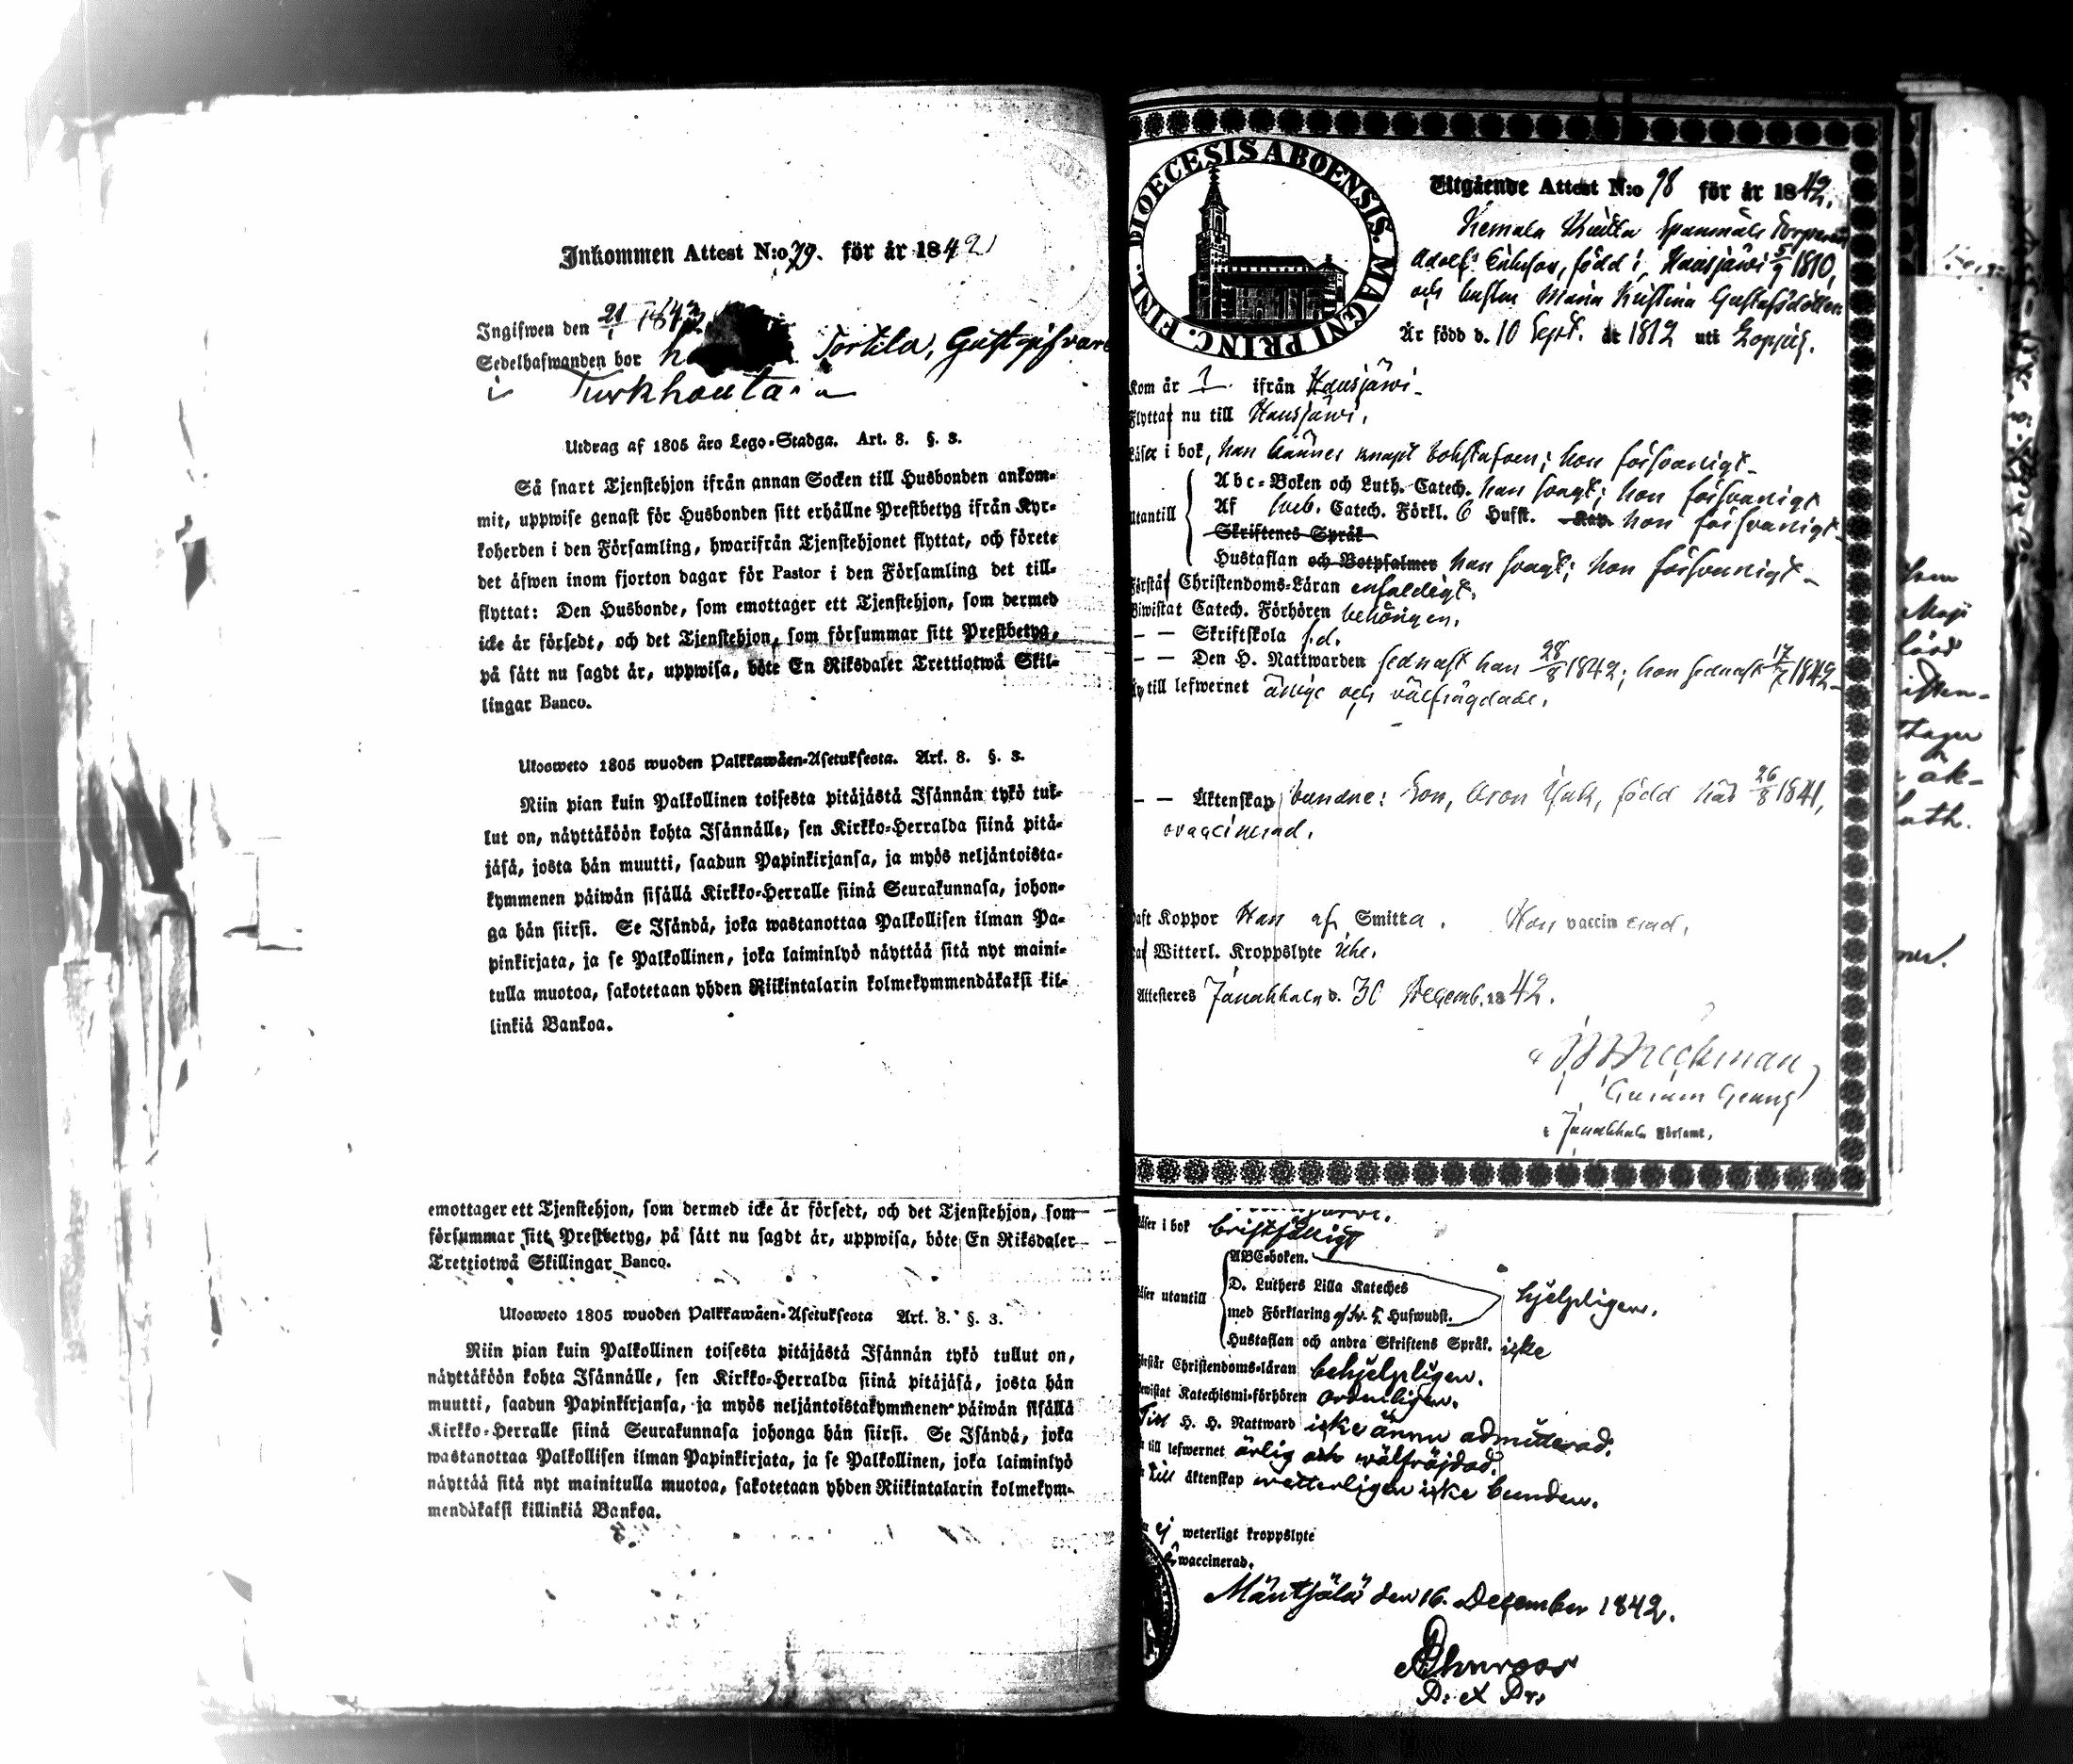 Inkommen Attest N:o 79. för år 1842
Ingifwen den 21/1 1843
Sedelhafwanden bor h Tortila, Gustaf
i Turkhauta
Utdrag af 1805 års Lego-Stadga. Art. 8. §. 3.
Så snart Tjenstehjon ifrån annan Socken till Husbonden ankom-
mit, uppwise genast för Husbonden sitt erhållne Prestbetyg ifrån Kyr-
koherden i den Församling, hwarifrån Tjenstehjonet flyttat, och förete
det äfwen inom fjorton dagar för Pastor i den Församling det till-
flyttat: Den Husbonde, som emottager ett Tjenstehjon, som dermed
icke är försedt, och det Tjenstehjon, som försummar sitt Prestbetyg,
på sätt nu sagdt är, uppwisa, böte En Riksdaler Trettiotwå Skil-
lingar Banco.
Ulosweto 1805 wuoden Palkkawäen-Asetuksesta. Art. 8. §. 3.
Niin pian kuin Palkollinen toisesta pitäjästä Isännän tykö tul-
lut on, näyttäköön kohta Isännälle, sen Kirkko-Herralda siinä pitä-
jäsä, josta hän muutti, saadun Papinkirjansa, ja myös neljäntoista-
kymmenen päiwän sisällä Kirkko-Herralle siinä Seurakunnasa, johon-
ga hän siirsi. Se Isändä, joka wastanottaa Palkollisen ilman Pa-
pinkirjata, ja se Palkollinen, joka laiminlyö näyttää sitä nyt maini-
tulla muotoa, sakotetaan yhden Riikintalarin kolmekymmendäkaksi kil-
linkiä Bankoa.
emottager ett Tjenstehjon, som dermed icke är försedt, och det Tjenstehjon, som
försummar sitt Prestbetyg, på sätt nu sagdt är, uppwisa, böte En Riksdaler
Trettiotwå Skillingar Banco.
Ulosweto 1805 wuoden Palkkawäen-Asetuksesta Art. 8. §. 3.
Niin pian kuin Palkollinen toisesta pitäjästä Isännän tykö tullut on,
näyttäköön kohta Isännälle, sen Kirkko-Herralda siinä pitäjäsä, josta hän
muutti, saadun Papinkirjansa, ja myös neljäntoistakymmenen päiwän sisällä
Kirkko-Herralle siinä Seurakunnasa johonga hän siirsi. Se Isändä, joka
wastanottaa Palkollisen ilman Papinkirjata, ja se Palkollinen, joka laiminlyö
näyttää sitä nyt mainitulla muotoa, sakotetaan yhden Riikintalarin kolmekym-
mendäkaksi killinkiä Bankoa.
DIOECESIS ABOENSIS. MAGNI PRINC. FINL.
Utgående Attest N:o 98 för år 1842.
Torparen
Adolf, född i Hausjärvi 5/9 1810,
och hustru Maria Kristina Gustafsdotter
Är född d. 10 Sept. år 1812 uti Loppis.
Kom år ifrån Hausjärvi
Flyttar nu till Hausjärvi.
Läser i bok, han känner knapt bokstafven; hon försvarligt
Abc-Boken och Luth. Catech. han svagt; hon försvarligt
Utantill Af Sveb. Catech. Förkl. 6 Hufst. hon försvarligt
Skriftenes Språk
Hustaflan och Botpsalmer han svagt; hon försvarligt
Förstår Christendoms-Läran enfaldigt.
Biwistat Catech. Förhören behörigen.
— — Skriftskola
— — Den H. Nattwarden sednast han 28/8 1842; hon sednast 17/7 1842
till lefwernet ärlige och välfrägdade.
— — Äktenskap bundne: Son, född här 26/8 1841,
ovaccinerad.
Haft Koppor Han af Smitta. Hon vaccinerad.
Witterl. Kroppslyte
Attesteres Janakkala d. 30 Decemb. 1842.
i Janakkala Församl.
Läser i bok bristfälligt
ABC-boken.
D. Luthers Lilla Kateches
Läser utantill med Förklaring af Sv. 5 Hufwudst. hjelpligen.
Hustaflan och andra Skriftens Språk. icke
Förstår Christendoms-läran behjelpligen.
Bewistat Katechismi-förhören ordentligen.
Till H. H. Nattward icke ännu admitterad.
till lefwernet ärlig och wälfräjdad.
till äktenskap wetterligen icke bunden.
ej weterligt kroppslyte
waccinerad.
Mäntsälä den 16. December 1842.